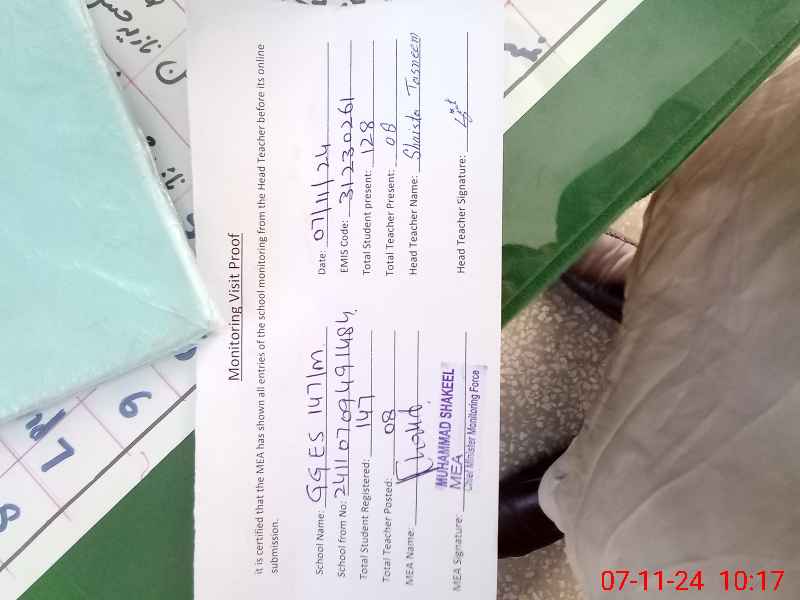 Monitoring Visit Proof
it is certified that the MEA has shown all entries of the school monitoring from the Head Teacher before its online
submission.
School Name: GGES 147/M Date: 07/11/24
School from No: 2411070949148 EMIS Code: 31230261
Total Student Registered: 147 Total Student present: 128
Total Teacher Posted: 08 Total Teacher Present: 08
MEA Name: Head Teacher Name: Shaista Tasneem
MUHAMMAD SHAKEEL
MEA
Chief Minister Monitoring Force
MEA Signature: Head Teacher Signature:
6
7
8
07-11-24 10:17